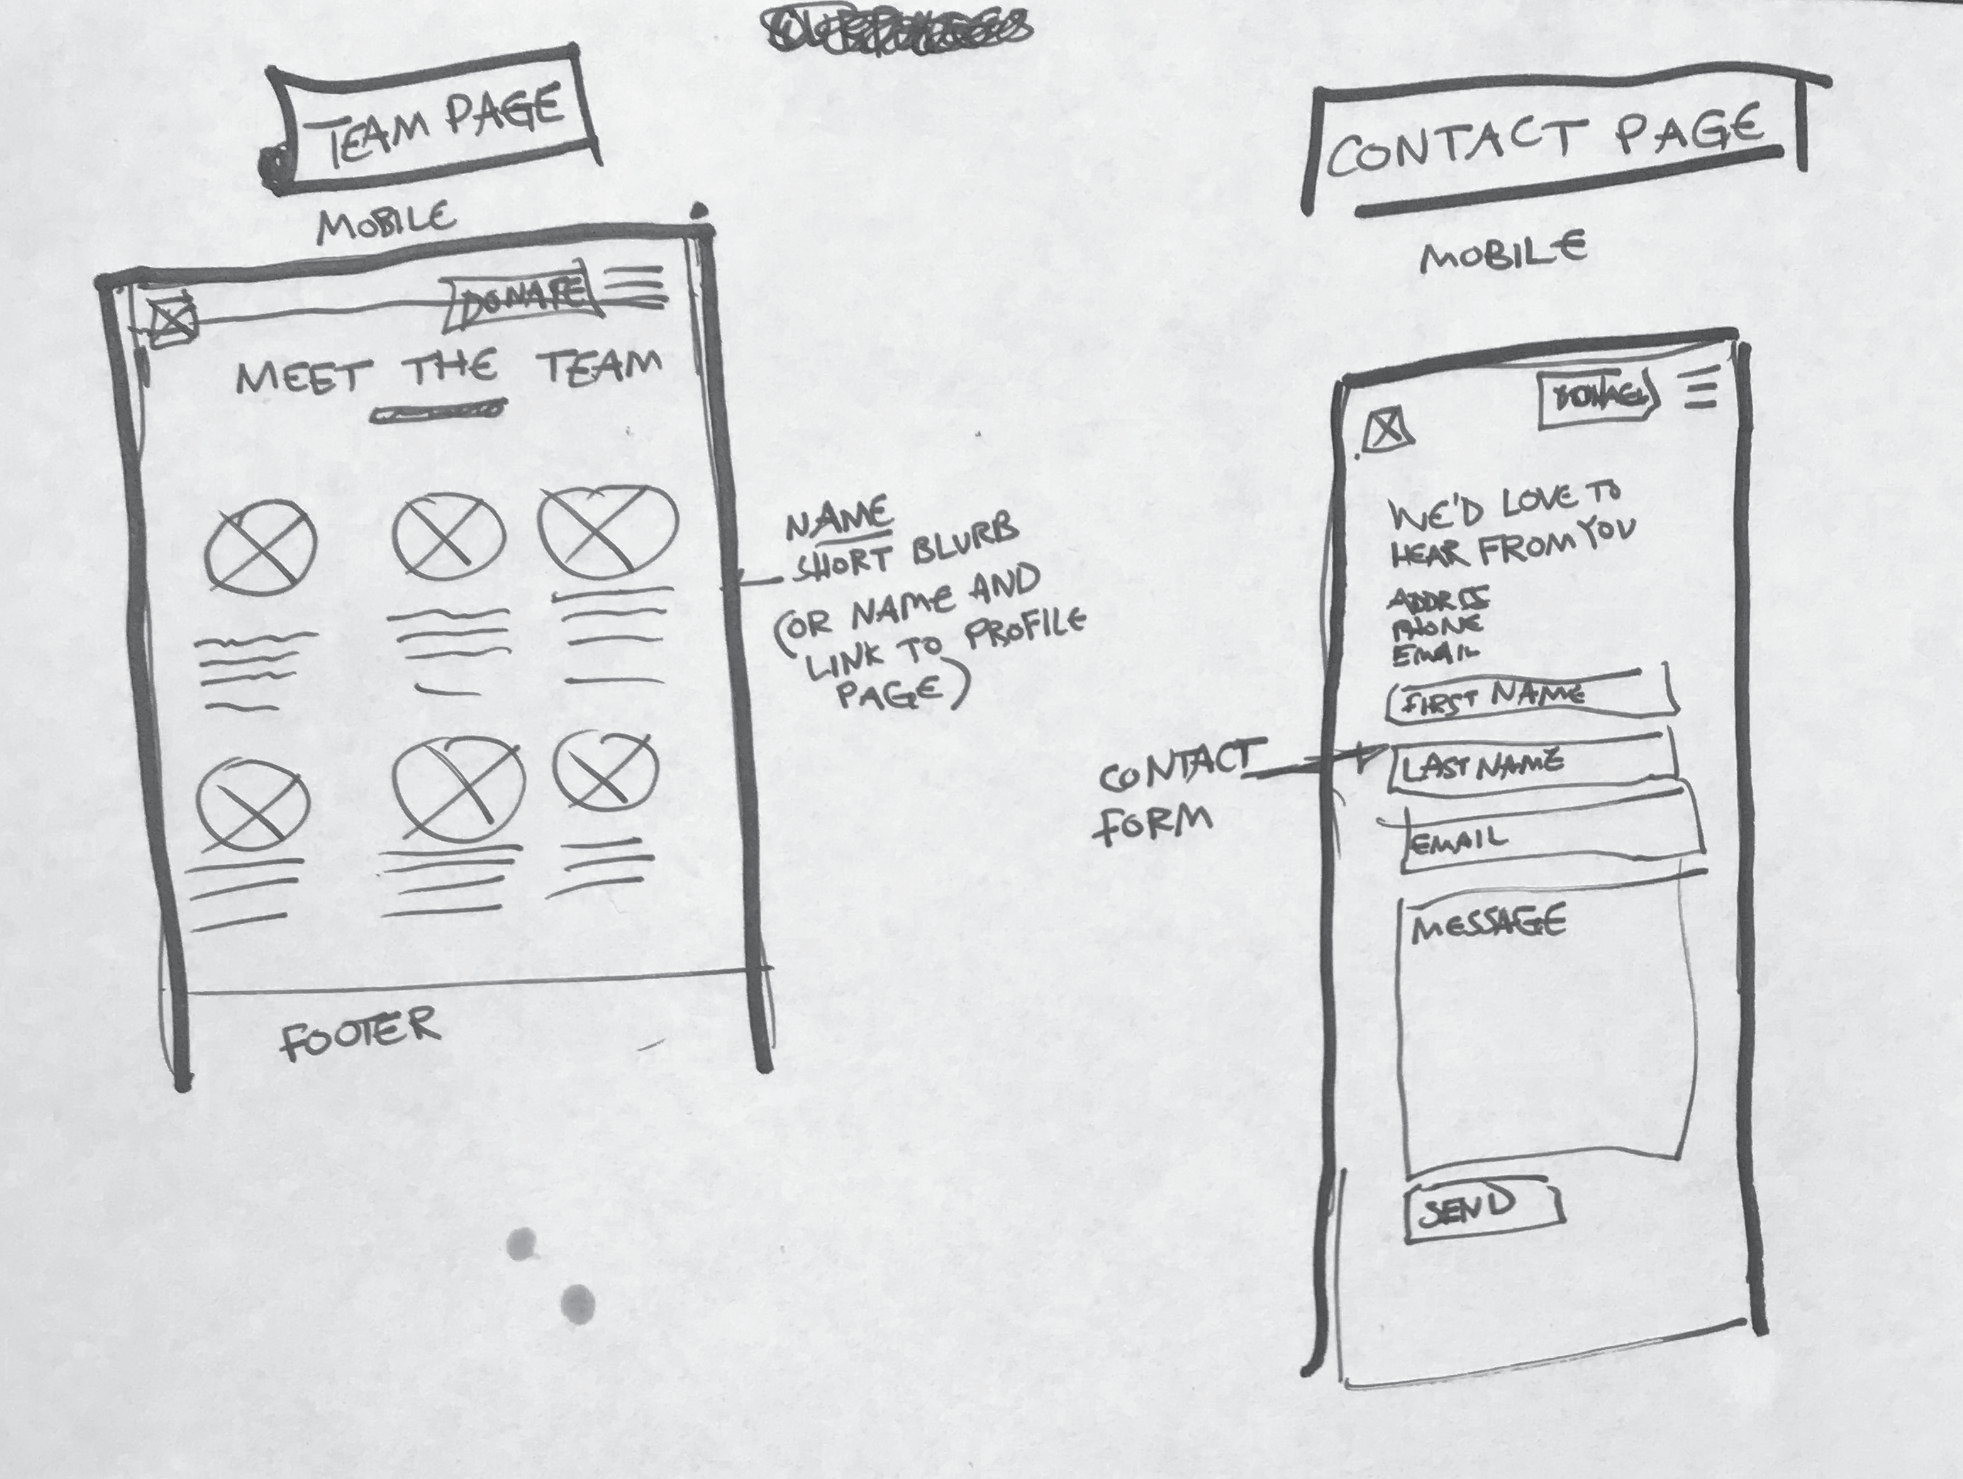 TEAM PAGE
MOBILE
DONATE
MEET THE TEAM
NAME
SHORT BLURB
(OR NAME AND
LINK TO PROFILE
PAGE)
FOOTER
CONTACT PAGE
MOBILE
DONATE
WE'D LOVE TO
HEAR FROM YOU
PHONE
EMAIL
CONTACT
FORM
FIRST NAME
LAST NAME
EMAIL
MESSAGE
SEND